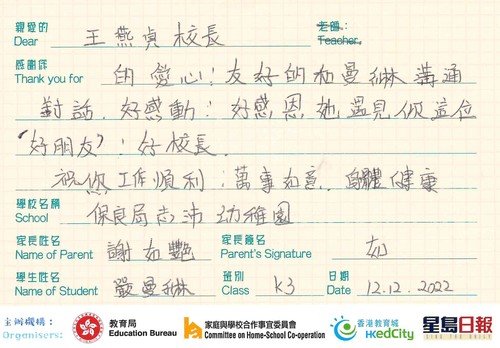 親愛的 王燕貞校長 老師：
Dear Teacher,
感謝你 的愛心！友好的和曼琳溝通
Thank you for
對話．好感動！好感恩她遇見你這位
"好朋友"！好校長．
祝您工作順利！萬事如意．身體健康
學校名稱
School 保良局志沛幼稚園
家長姓名 謝如艷 家長簽名 如
Name of Parent Parent's Signature
學生姓名 嚴曼琳 班別 K3 日期 12.12.2022
Name of Student Class Date
主辦機構：
Organisers:
教育局
Education Bureau
家庭與學校合作事宜委員會
Committee on Home-School Co-operation
香港教育城
HKedCity
星島日報
SING TAO DAILY